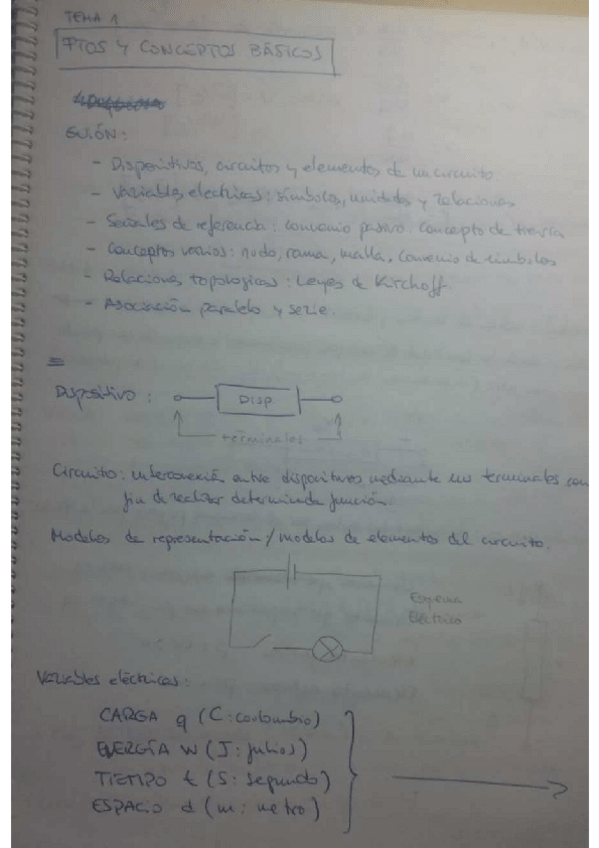 TEMA 1
FTOS Y CONCEPTOS BÁSICOS
GUIÓN:
- Dispositivos, circuitos y elementos de un circuito
- Variables electricas: símbolos, unidades y relaciones
- Señales de referencia: convenio pasivo. Concepto de tierra
- Conceptos varios: nodo, rama, malla, convenio de símbolos
- Relaciones topologicas: Leyes de Kirchoff
- Asociación paralelo y serie.
Dispositivo:
DISP
terminales
Circuito: interconexión entre dispositivos mediante sus terminales con
fin de realizar determinada función.
Modelos de representación / modelos de elementos del circuito.
Esquema
Eléctrico
Variables eléctricas:
CARGA q (C: coulombio)
ENERGÍA W (J: julios)
TIEMPO t (S: segundo)
ESPACIO d (m: metro)